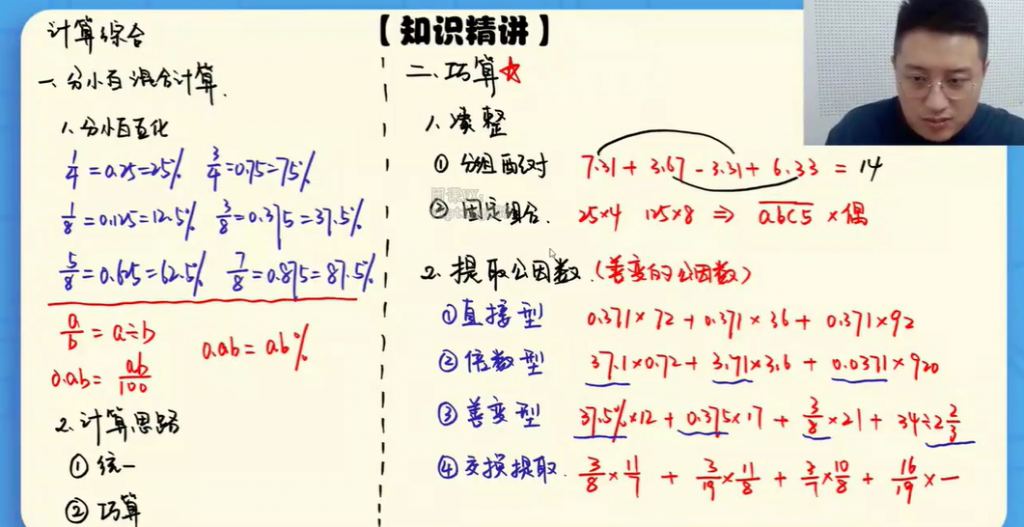 【知识精讲】
计算综合
一、分小百混合计算.
1.分小百互化
1/4=0.25=25% 3/4=0.75=75%
1/8=0.125=12.5% 3/8=0.375=37.5%
5/8=0.625=62.5% 7/8=0.875=87.5%
a/b=a÷b
0.ab=ab%
0.ab=ab/100
2.计算思路
①统一
②巧算
二、巧算☆
1.凑整
①分组配对 7.31+3.67-3.31+6.33=14
②固定组合. 25×4 125×8 ⇒ abc5×偶
2.提取公因数.(善变的公因数)
①直接型 0.371×72+0.371×36+0.371×92
②倍数型 37.1×0.72+3.71×3.6+0.0371×920
③善变型 37.5%×12+0.375×17+3/8×21+34÷2 2/3
④交换提取. 3/8×11/7+3/19×11/8+3/7×10/8+16/19×一